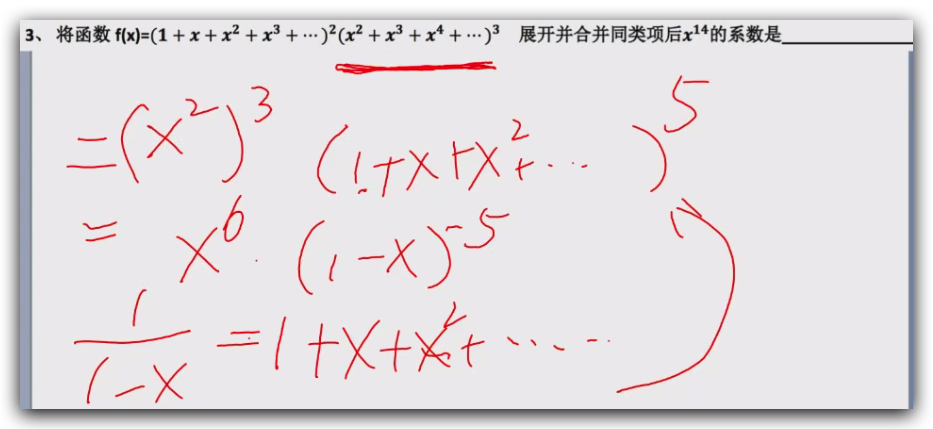 3、 将函数 f(x)=(1 + x + x² + x³ + ⋯)²(x² + x³ + x⁴ + ⋯)³ 展开并合并同类项后x¹⁴的系数是____________
=(x²)³ (1+x+x²+⋯)⁵
= x⁶·(1-x)⁻⁵
1/(1-x) =1+x+x²+⋯⋯